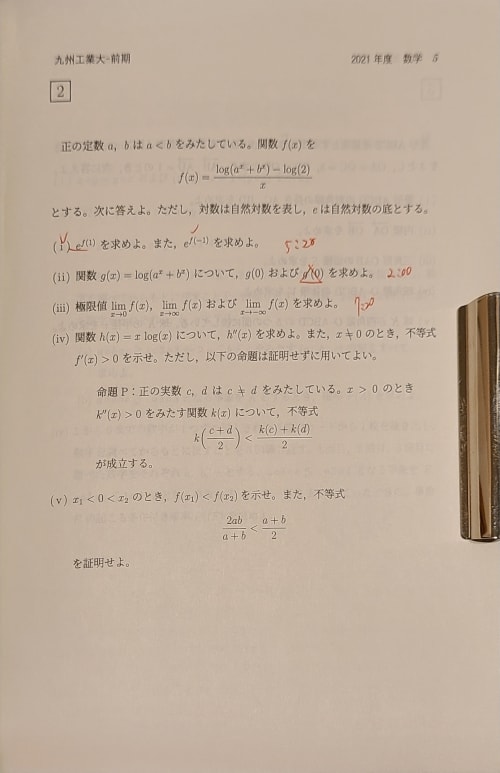 九州工業大-前期
2021 年度 数学 5
2
正の定数 a, b は a < b をみたしている。関数 f(x) を
f(x) = (log(a^x + b^x) − log(2)) / x
とする。次に答えよ。ただし,対数は自然対数を表し,e は自然対数の底とする。
(i) e^{f(1)} を求めよ。また,e^{f(−1)} を求めよ。 5:20
(ii) 関数 g(x) = log(a^x + b^x) について,g(0) および g'(0) を求めよ。 2:00
(iii) 極限値 lim_{x→0} f(x), lim_{x→∞} f(x) および lim_{x→−∞} f(x) を求めよ。
(iv) 関数 h(x) = x log(x) について,h''(x) を求めよ。また,x ≠ 0 のとき,不等式
f'(x) > 0 を示せ。ただし,以下の命題は証明せずに用いてよい。
命題 P:正の実数 c, d は c ≠ d をみたしている。x > 0 のとき
k''(x) > 0 をみたす関数 k(x) について,不等式
k((c + d) / 2) < (k(c) + k(d)) / 2
が成立する。
(v) x₁ < 0 < x₂ のとき,f(x₁) < f(x₂) を示せ。また,不等式
2ab / (a + b) < (a + b) / 2
を証明せよ。